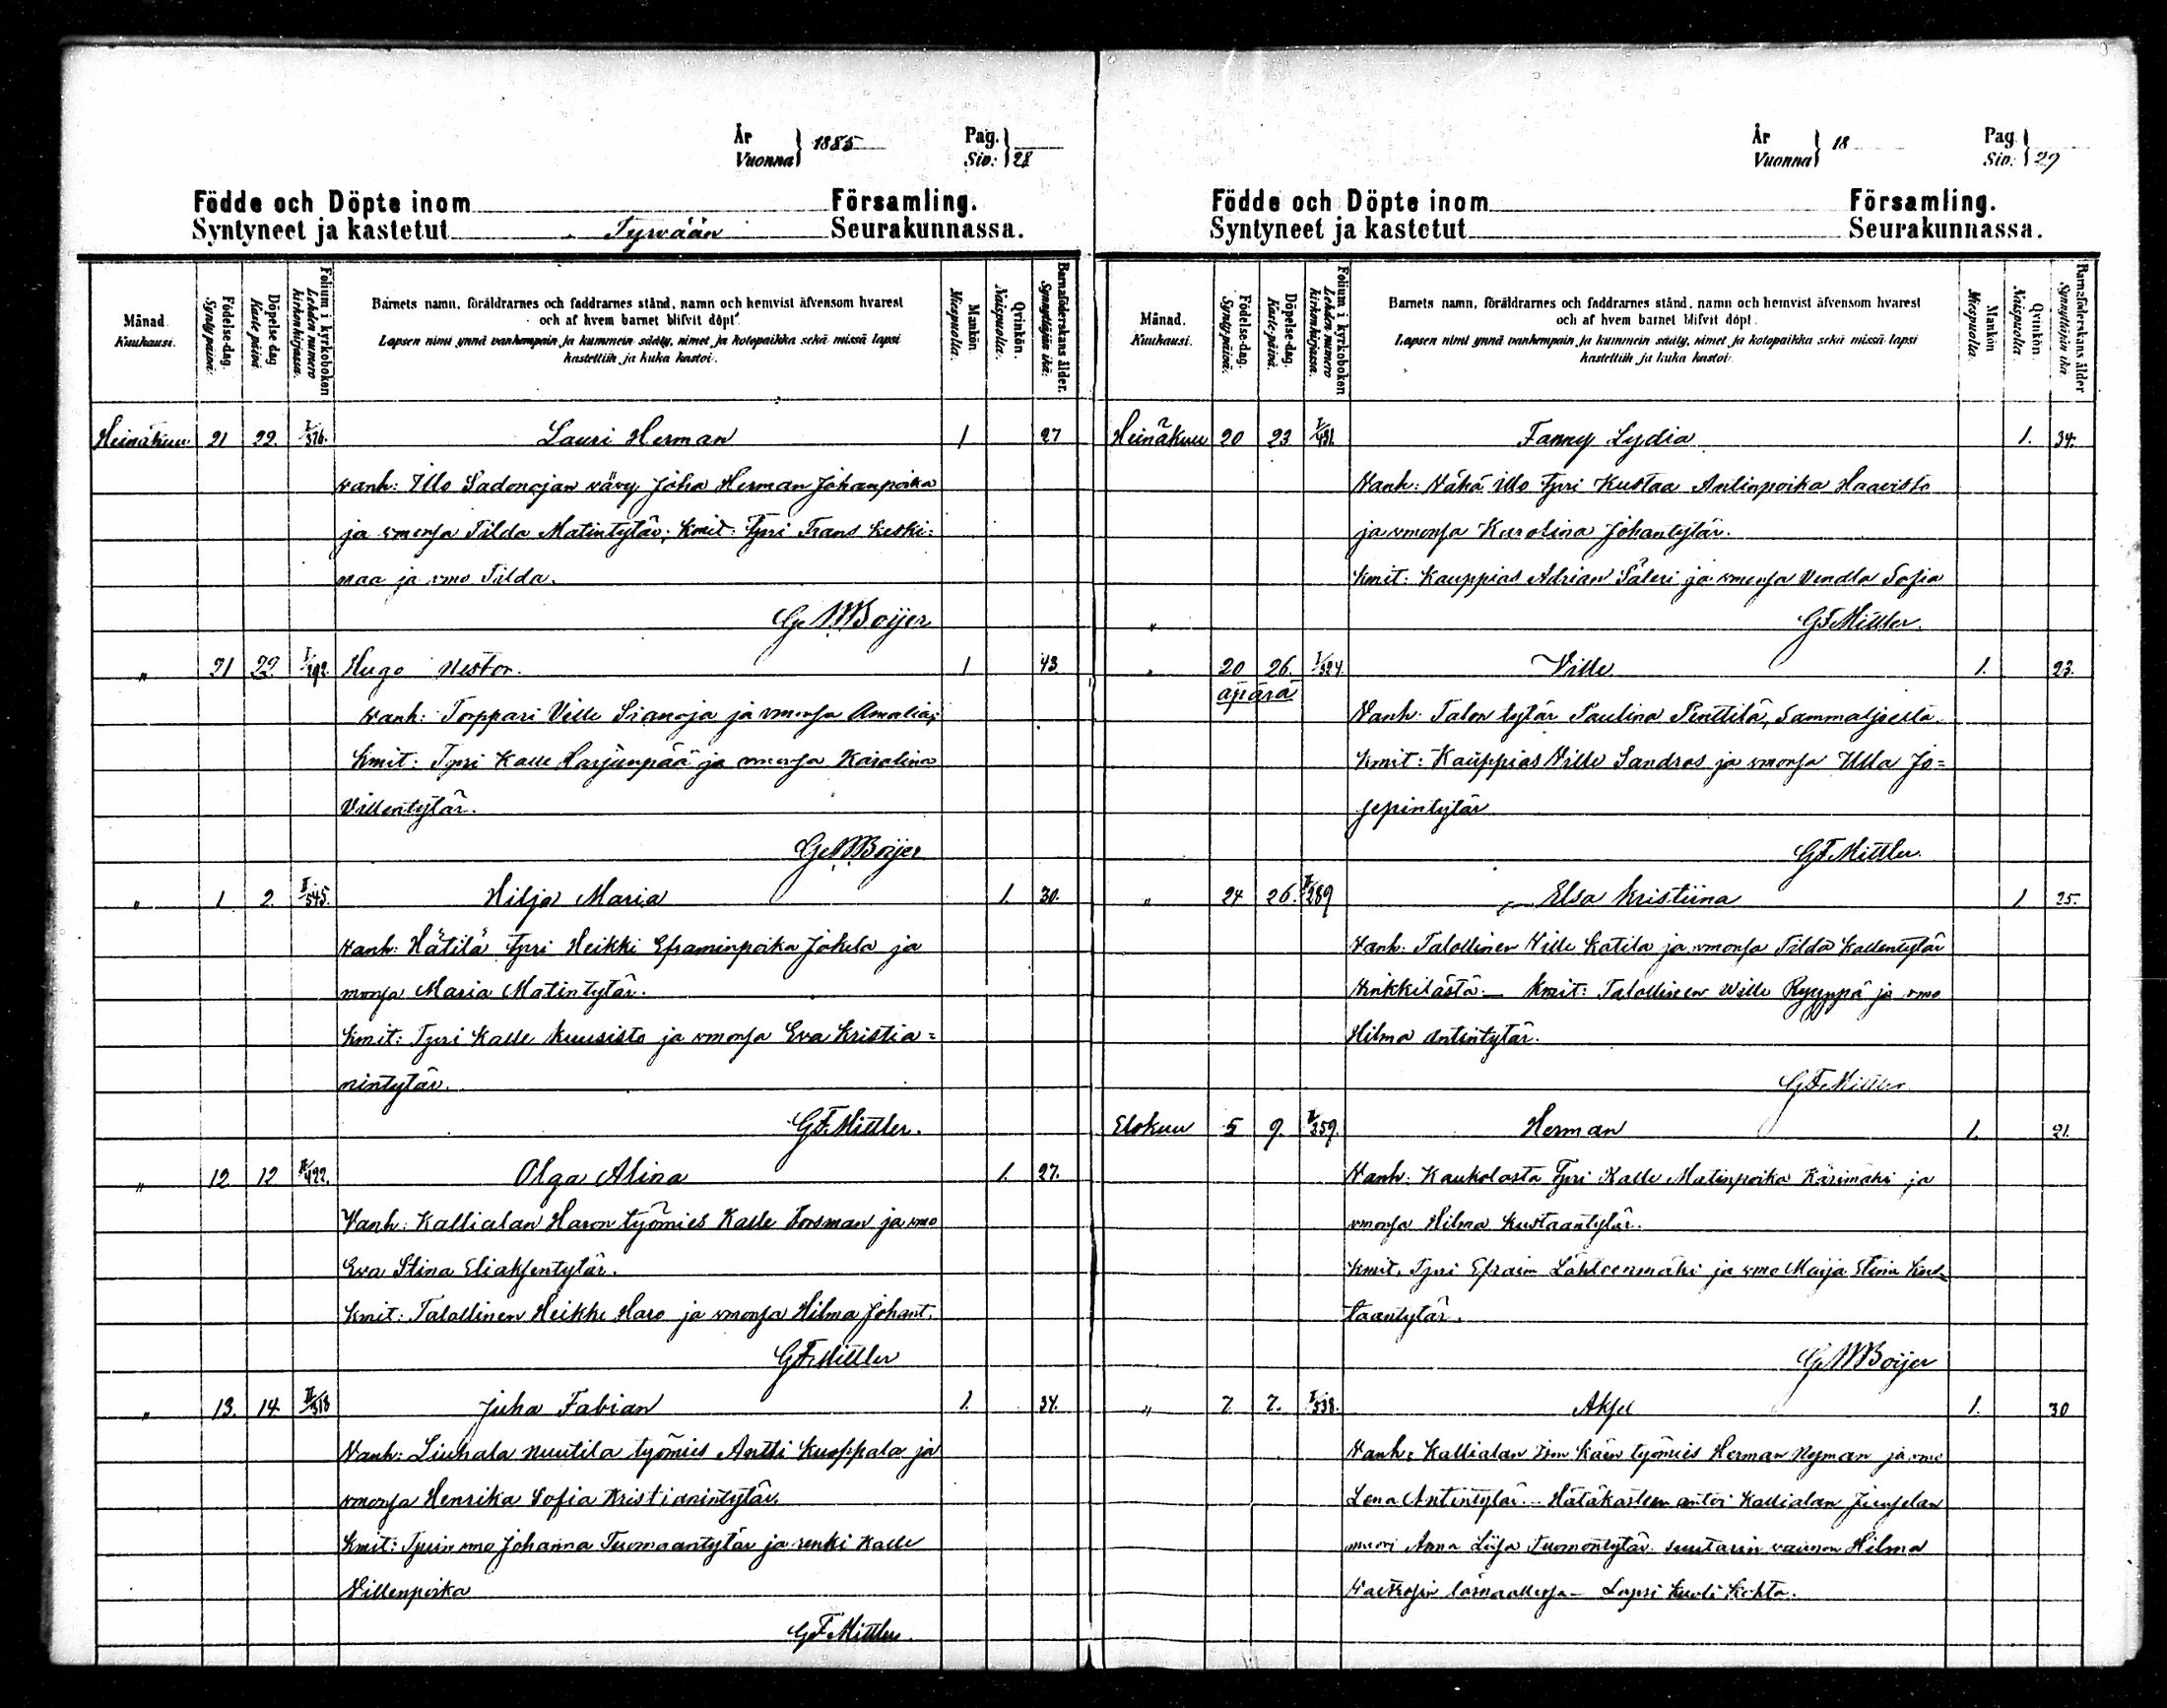 År
Vuonna } 1885
Pag.
Siv: } 28
Födde och Döpte inom Församling.
Syntyneet ja kastetut Tyrvään Seurakunnassa.
Månad. Kuukausi.
Födelse-dag. Synty päivä.
Döpelse-dag. Kaste päivä.
Folium i kyrkoboken Lehden numero kirkonkirjassa.
Barnets namn, föräldrarnes och faddrarnes stånd, namn och hemvist äfvensom hvarest
och af hvem barnet blifvit döpt.
Lapsen nimi ynnä vanhempain ja kummein sääty, nimet ja kotopaikka sekä missä lapsi
kastettiin ja kuka kastoi.
Mankön Miespuolia.
Qvinkön. Naispuolia.
Barnaföderskans ålder. Synnyttäjän ikä.
Heinäkuu 21 22. I/376. Lauri Herman 1 27
vanh: Illo Sadonojan vävy Joha Herman Johanpoika
ja vmonsa Tilda Matintytär; Kmit: Tpri Frans Keski:
maa ja vmo Tilda.
G. W Boijer
" 21 22. I/292. Hugo Nestor. 1 43.
Vanh: Torppari Ville Sianoja ja vmonsa Amalia;
Kmit: Tpri Kalle Harjunpää ja vmonsa Karolina
Villentytär.
G. W Boijer
" 1 2. II/545. Hilja Maria 1. 30.
Vanh: Hätilä Tpri Heikki Eframinpoika Jokela ja
monsa Maria Matintytär.
Kmit: Tpri Kalle Kuusisto ja vmonsa Eva Kristia=
nintytär.
GF. Mittler.
" 12 12 II/422. Olga Alina 1. 27.
Vanh: Kallialan Haron työmies Kalle Forsman ja vmo
Eva Stina Eliaksentytär.
Kmit: Talollinen Heikki Haro ja vmonsa Hilma Johant.
GF. Mittler
" 13. 14. II/318 Juha Fabian 1. 34.
Vanh: Liuhala Nuutila työmies Antti Kuoppala ja
vmonsa Henrika Sofia Kristianintytär.
Kmit: Tprin vmo Johanna Tuomaantytär ja renki Kalle
Villenpoika
GF Mittler.
År
Vuonna } 18
Pag
Siv: } 29
Födde och Döpte inom Församling.
Syntyneet ja kastetut Seurakunnassa.
Månad. Kuukausi.
Födelse-dag. Synty päivä.
Döpelse-dag. Kaste päivä.
Folium i kyrkoboken Lehden numero kirkonkirjassa.
Barnets namn, föräldrarnes och faddrarnes stånd, namn och hemvist äfvensom hvarest
och af hvem barnet blifvit döpt.
Lapsen nimi ynnä vanhempain ja kummein sääty, nimet ja kotopaikka sekä missä lapsi
kastettiin ja kuka kastoi.
Mankön Miespuolia
Qvinkön. Naispuolia
Barnaföderskans ålder Synnyttäjän ikä
Heinäkuu 20 23 I/431. Fanny Lydia 1. 34.
Vanh: Vähä Illo Tpri Kustaa Antinpoika Haavisto
ja vmonsa Karolina Johantytär.
Kmit: Kauppias Adrian Säleri ja vmonsa Vendla Sofia
" GF Mittler.
" 20 26. I/324. Ville 1. 23.
äpärä
Vanh: Talon tytär Paulina Penttilä, Sammaljoelta
Kmit: Kauppias Ville Sandros ja vmonsa Ulla Jo=
sepintytär
GF. Mittler.
" 24 26. II/289 Elsa Kristiina 1 25.
Vanh: Talollinen Ville Katila ja vmonsa Tilda Kallentytär
Vinkkilästä. — Kmit: Talollinen Ville Ryyppä ja vmo
Hilma Antintytär.
GF. Mittler
Elokuu 5 9. II/259. Herman 1. 21.
Vanh: Kaukolasta Tpri Kalle Matinpoika Kärimäki ja
vmonsa Hilma Kustaantytär.
Kmit. Tpri Efraim Lähteenmäki ja vmo Maija Stina Kus=
taantytär.
G. W Boijer
" 7. 7. I/538. Aksel 1. 30
Vanh: Kallialan Käen työmies Herman Nyman ja vmo
Lena Antintytär. Hätäkasteen antoi Kallialan
muori Anna Liisa Tuomontytär suutarin vaimon Hilma
läsnäollessa — Lapsi kuoli kohta.